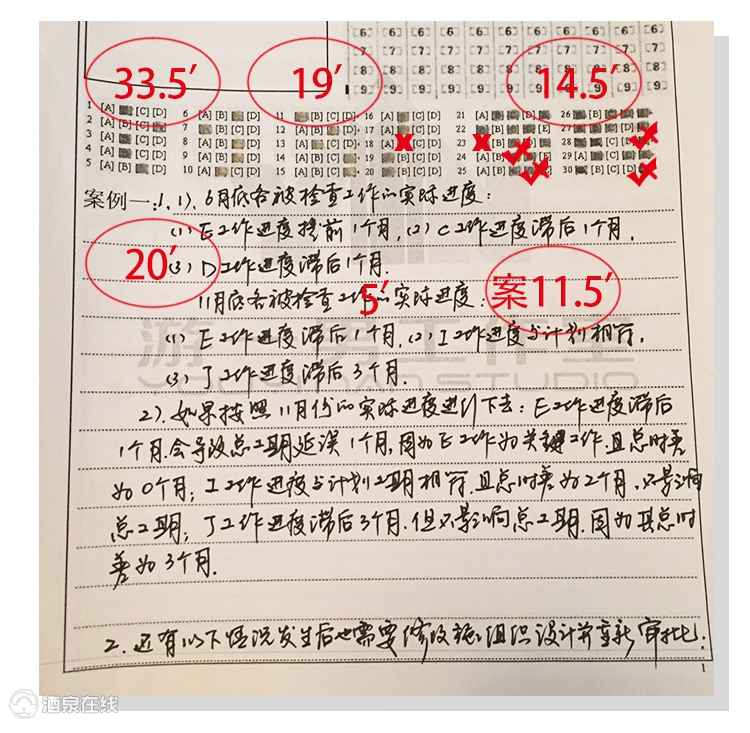 [6] [6] [6] [6] [6] [6] [6]
[7] [7] [7] [7] [7] [7] [7]
[8] [8] [8] [8] [8] [8] [8]
[9] [9] [9] [9] [9] [9] [9]
33.5′ 19′ 14.5′
1 [A] [C] [D] 6 [A] [B] [D] 11 [B] [C] [D] 16 [A] [C] [D] 21 26
2 [A] [B] [C] 7 12 17 22 27
3 [A] [C] [D] 8 13 18 23 28
4 [A] [C] [D] 9 14 19 24 29
5 [A] [B] [D] 10 15 20 25 30
案例一:1. 1). 6月底各被检查工作的实际进度:
(1) E工作进度提前1个月, (2) C工作进度滞后1个月,
20′ (3) D工作进度滞后1个月.
11月底各被检查工作的实际进度:
5′ 案11.5′
(1) E工作进度滞后1个月, (2) I工作进度与计划相符,
(3) J工作进度滞后3个月.
2). 如果按照11月份的实际进度进行下去: E工作进度滞后
1个月.会导致总工期延误1个月,因为E工作为关键工作且总时差
为0个月; I工作进度与计划工期相符.且总时差为2个月,只影响
总工期; J工作进度滞后3个月.但只影响总工期.因为其总时
差为3个月.
2. 还有以下情况发生后也需要修改施工组织设计并重新审批:
工作室
STUDIO
酒泉在线